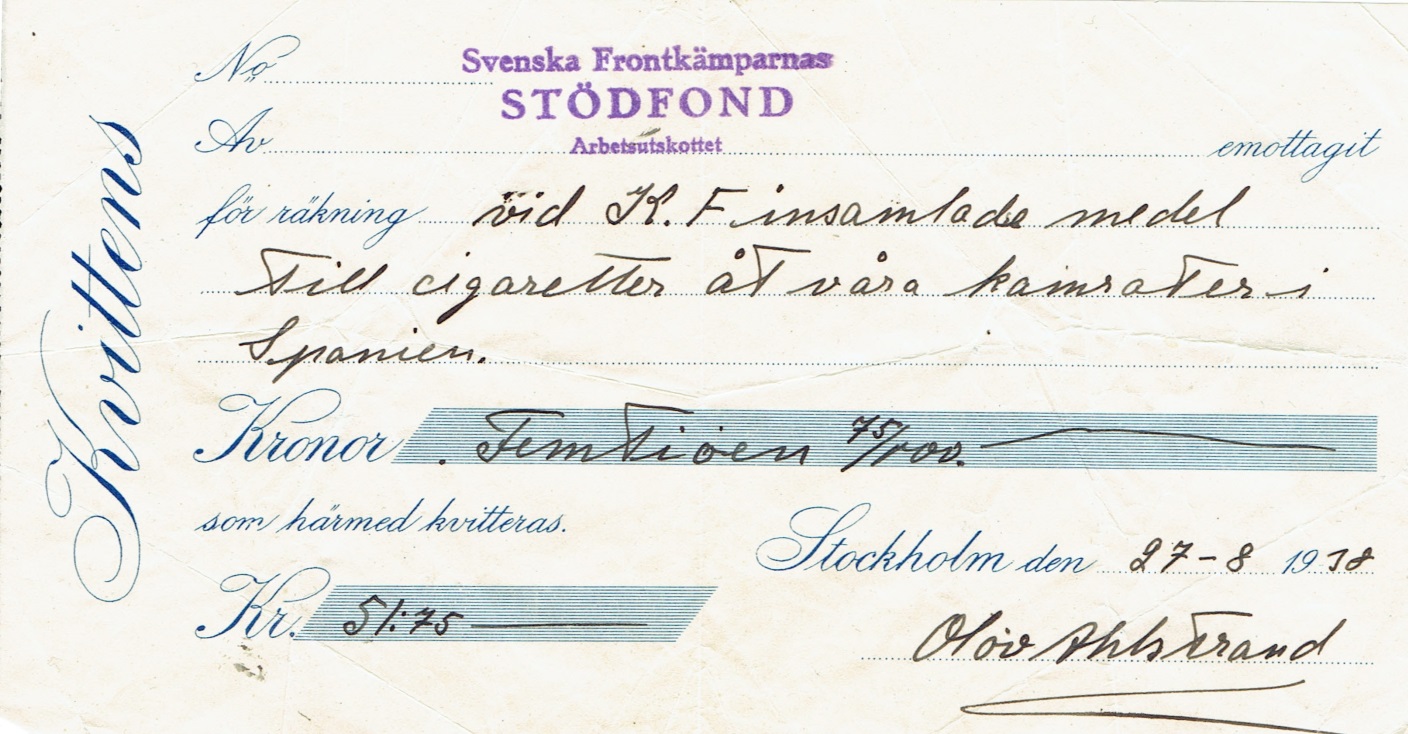 Kvittens
No
Svenska Frontkämparnas
STÖDFOND
Arbetsutskottet
Av emottagit
för räkning vid K. F insamlade medel
till cigaretter åt våra kamrater i
Spanien.
Kronor Femtioen 75/100.
som härmed kvitteras.
Stockholm den 27-8 1938
Kr. 51:75
Olov Ahlstrand